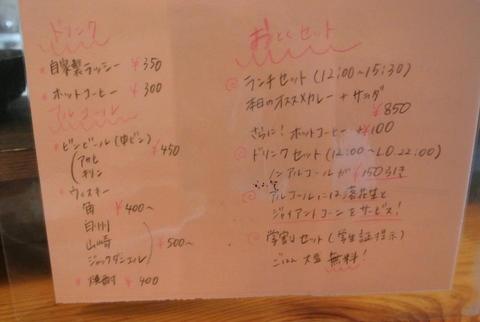 ドリンク
自家製ラッシー ¥350
ホットコーヒー ¥300
アルコール
ビンビール(中ビン) ¥450
アサヒ
キリン
ウィスキー
角 ¥400~
白州
山崎
ジャックダニエル
¥500~
焼酎 ¥400
おとくセット
ランチセット(12:00~15:30)
本日のオススメカレー + サラダ
¥850
さらに!ホットコーヒー +¥100
ドリンクセット(12:00~L.O.22:00)
ノンアルコールが ¥150引き
アルコールには落花生と
ジャイアントコーンをサービス!
学割りセット(学生証提示)
ごはん 大盛 無料!